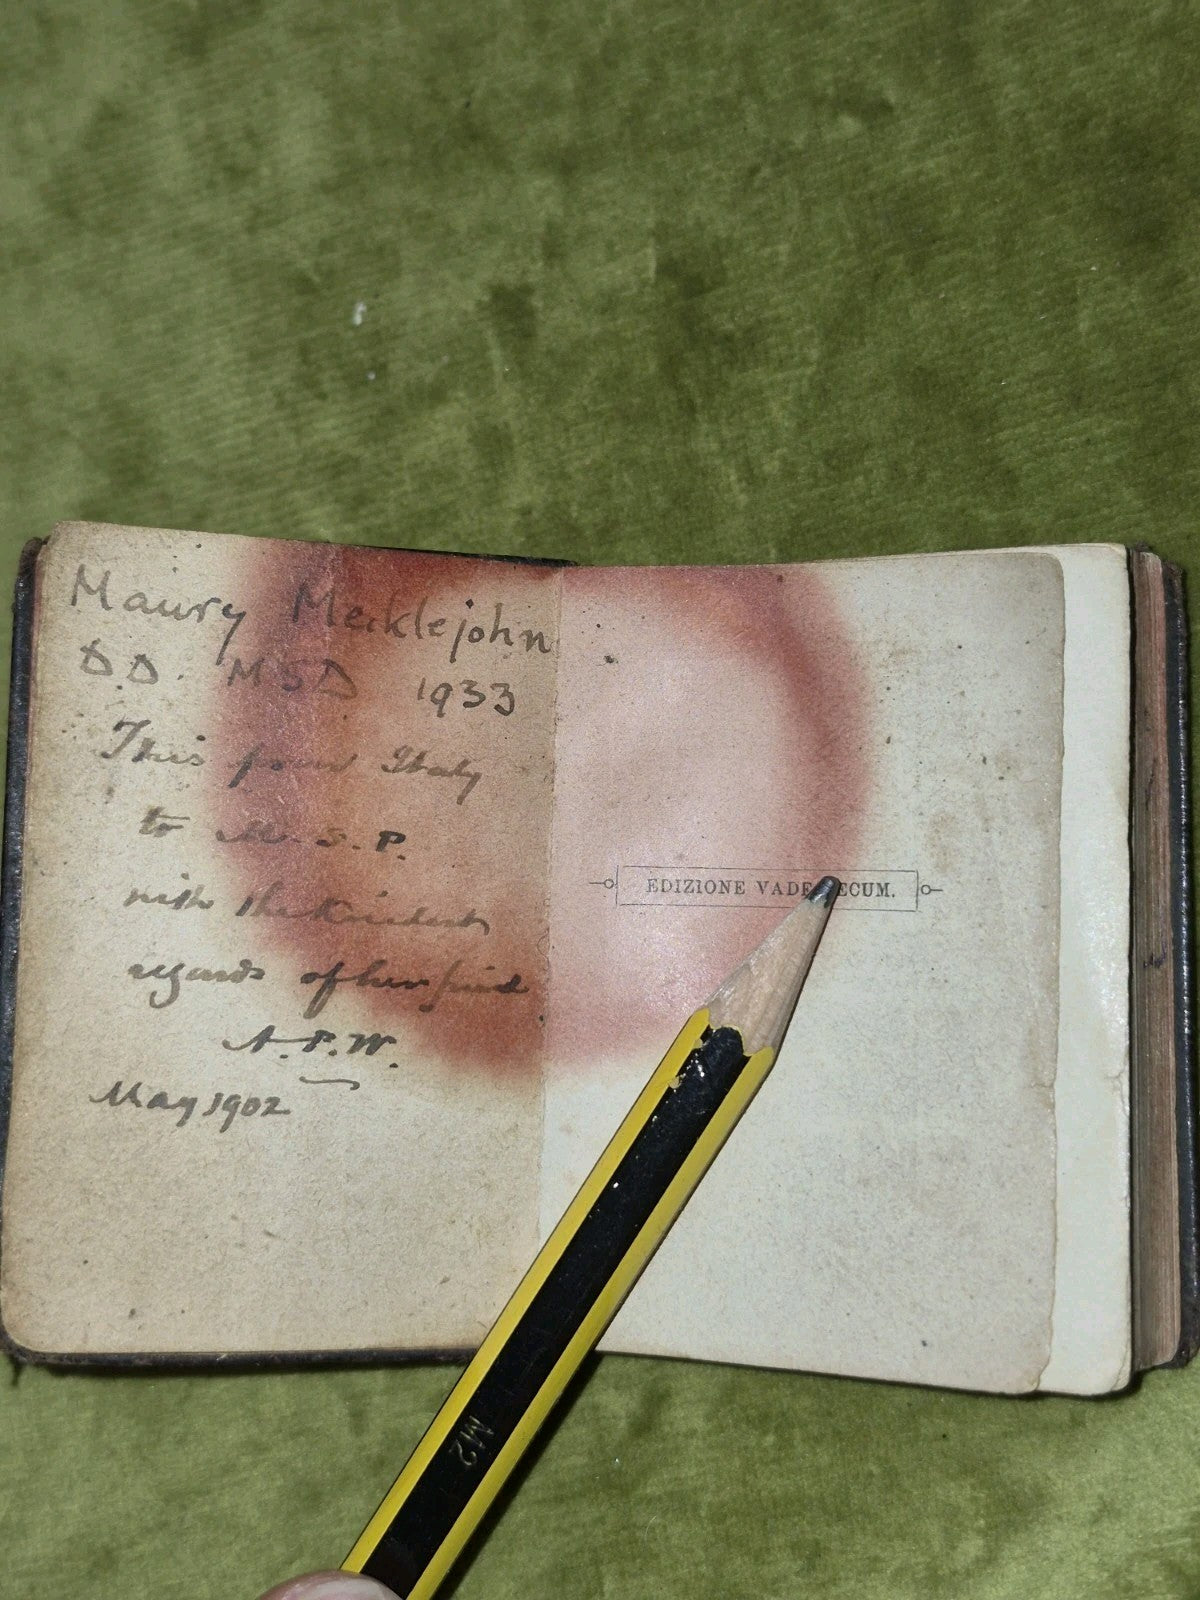 Maury Meiklejohn
D.D. M S D 1933
This from Italy
to M. S. P.
with the kindest
regards of her friend
A. P. W.
May 1902
EDIZIONE VADE ECUM.
M2